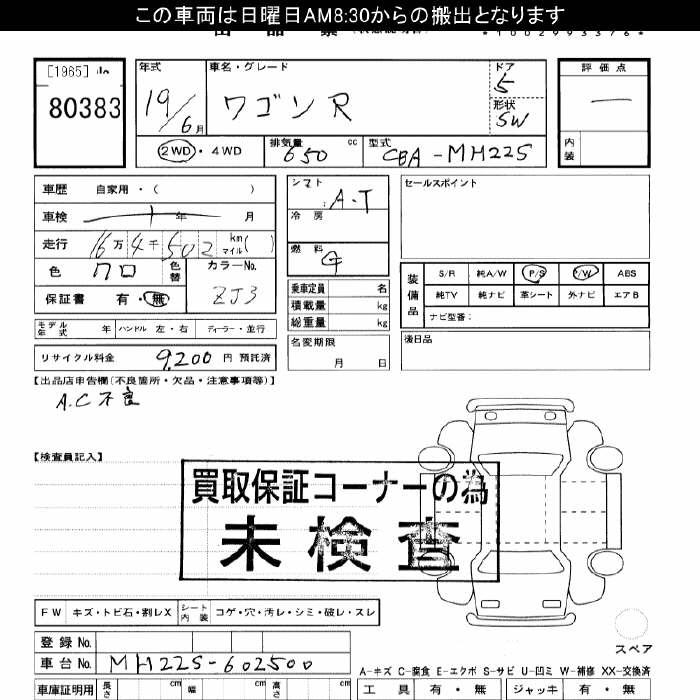 この車両は日曜日AM8:30からの搬出となります
[1965]
80383
年式
19/6月
車名・グレード
ワゴンR
ドア
5
形状
SW
評価点
—
内装
2WD・4WD
排気量 650 cc
型式 CBA-MH22S
車歴 自家用・( )
車検 年 月
走行 16万4千502 km マイル( )
色 クロ 色替
カラーNo. ZJ3
保証書 有・無
モデル年式 年 ハンドル 左・右 ディーラー・並行
リサイクル料金 9,200 円 預託済
シフト A・T
冷房
燃料 G
乗車定員 名
積載量 kg
総重量 kg
名変期限 月 日
セールスポイント
装備品
S/R 純A/W P/S P/W ABS
純TV 純ナビ 革シート 外ナビ エアB
ナビ型番:
後日品
【出品店申告欄(不良箇所・欠品・注意事項等)】
A.C不良
【検査員記入】
買取保証コーナーの為
未検査
FW キズ・トビ石・割レX シート内装 コゲ・穴・汚レ・シミ・破レ・スレ
登録No.
車台No. MH22S-602500
スペア
A-キズ C-腐食 E-エクボ S-サビ U-凹ミ W-補修 XX-交換済
車庫証明用 長さ cm 幅 cm 高さ cm
工具 有・無 ジャッキ 有・無